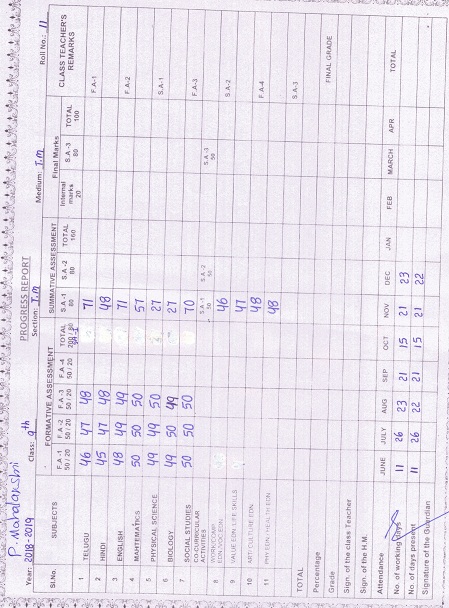 PROGRESS REPORT
Year: 2018-2019 Class: 9th Section: T.M Medium: T.M Roll No.: 11
Sl.No. SUBJECTS FORMATIVE ASSESSMENT SUMMATIVE ASSESSMENT Final Marks CLASS TEACHER'S REMARKS
F.A -1 50 / 20 F.A -2 50 / 20 F.A -3 50 / 20 F.A -4 50 / 20 TOTAL S.A -1 80 S.A -2 80 TOTAL 160 Internal marks 20 S.A -3 80 TOTAL 100
1 TELUGU 46 47 48 71 F.A-1
2 HINDI 45 47 48 48
3 ENGLISH 48 49 49 71 F.A-2
4 MAHTEMATICS 50 50 50 57
5 PHYSICAL SCIENCE 49 49 50 27 S.A-1
6 BIOLOGY 49 50 49 27
7 SOCIAL STUDIES 50 50 50 70 F.A-3
CO-CURRICULAR ACTIVITIES S.A -1 50 S.A -2 50 S.A -3 50
8 46 S.A-2
9 VALUE EDN. LIFE SKILLS 47
10 CULTURE EDN 48 F.A-4
11 HEALTH EDN 48
TOTAL S.A-3
Percentage
Grade FINAL GRADE
Sign. of the class Teacher
Sign. of the H.M.
Attendance JUNE JULY AUG SEP OCT NOV DEC JAN FEB MARCH APR TOTAL
No. of working days 11 26 23 21 15 21 23
No. of days present 11 26 22 21 15 21 22
Signature of the Guardian